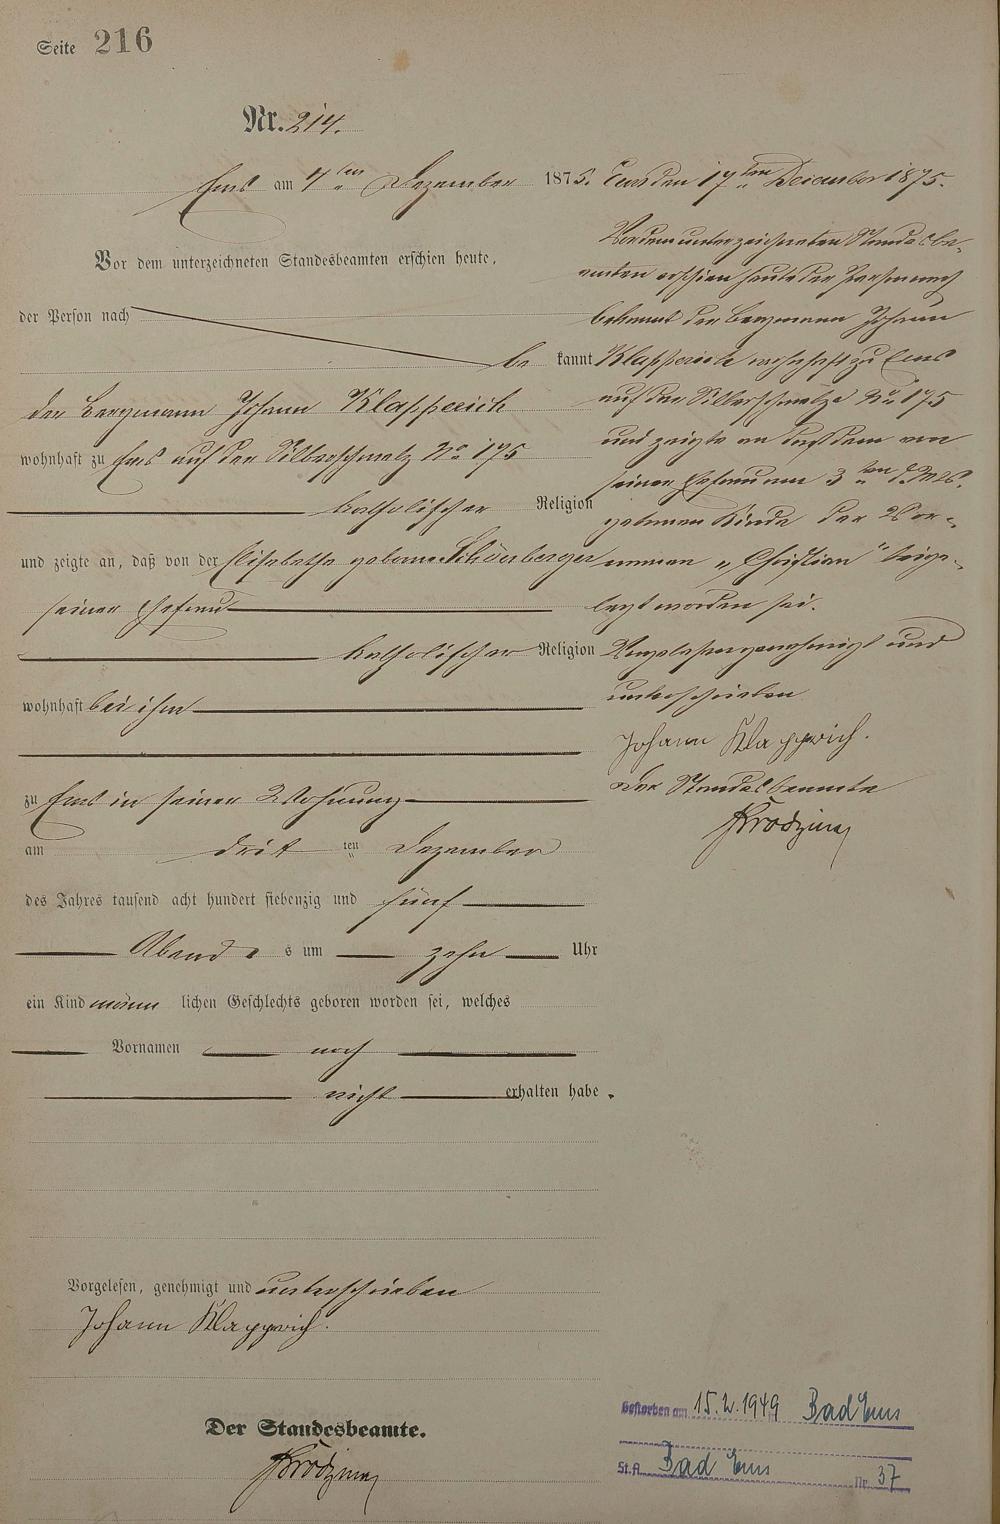 Seite 216
Nr. 214.
Ems am 7ten Dezember 1875.
Vor dem unterzeichneten Standesbeamten erschien heute,
der Person nach
be kannt
der Bergmann Johann Klapperich
wohnhaft zu Ems auf der Silberschmelz No 175
katholischer Religion
und zeigte an, daß von der Elisabetha geborne Schönberger
seiner Ehefrau
katholischer Religion
wohnhaft bei ihm
zu Ems in seiner Wohnung
am dritten Dezember
des Jahres tausend acht hundert siebenzig und fünf
Abends um zehn Uhr
ein Kind männlichen Geschlechts geboren worden sei, welches
Vornamen noch
nicht erhalten habe.
Vorgelesen, genehmigt und unterschrieben
Johann Klapperich.
Der Standesbeamte.
Ems den 17ten December 1875.
Vor dem unterzeichneten Standesbe-
amten erschien heute der Person nach
bekannt der Bergmann Johann
Klapperich wohnhaft zu Ems
auf der Silberschmelze No 175
und zeigte an daß dem von
seiner Ehefrau am 3ten d. Mts.
gebornen Kinde der Vor-
namen „Christian" beige-
legt worden sei.
Vorgelesen genehmigt und
unterschrieben
Johann Klapperich.
Der Standesbeamte
Gestorben am 15.2.1949 Bad Ems
St.A. Bad Ems Nr. 37